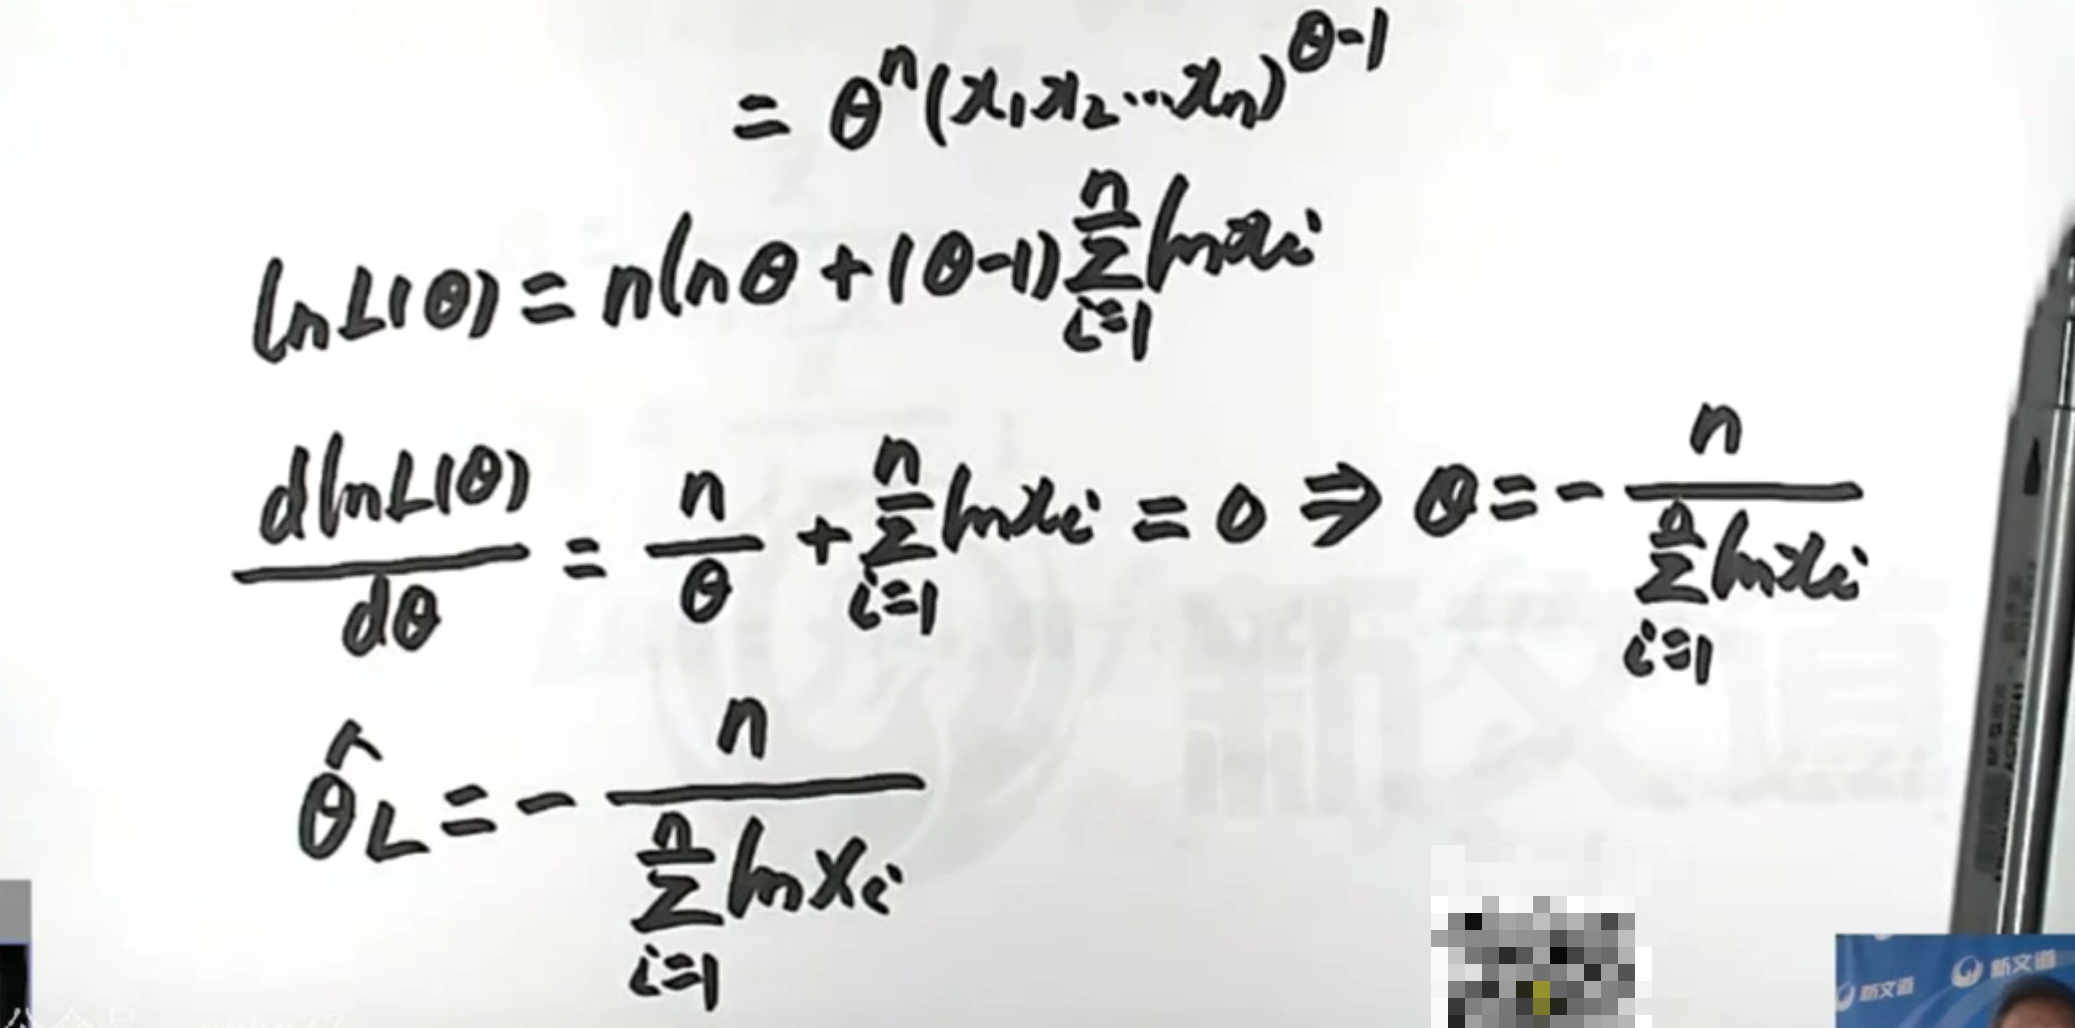 = θ^n (x₁x₂…xₙ)^(θ-1)
ln L(θ) = n ln θ + (θ-1) Σ_{i=1}^{n} ln xᵢ
d ln L(θ) / dθ = n/θ + Σ_{i=1}^{n} ln xᵢ = 0 ⇒ θ = - n / Σ_{i=1}^{n} ln xᵢ
θ̂_L = - n / Σ_{i=1}^{n} ln Xᵢ
新文道
新文道
新文道